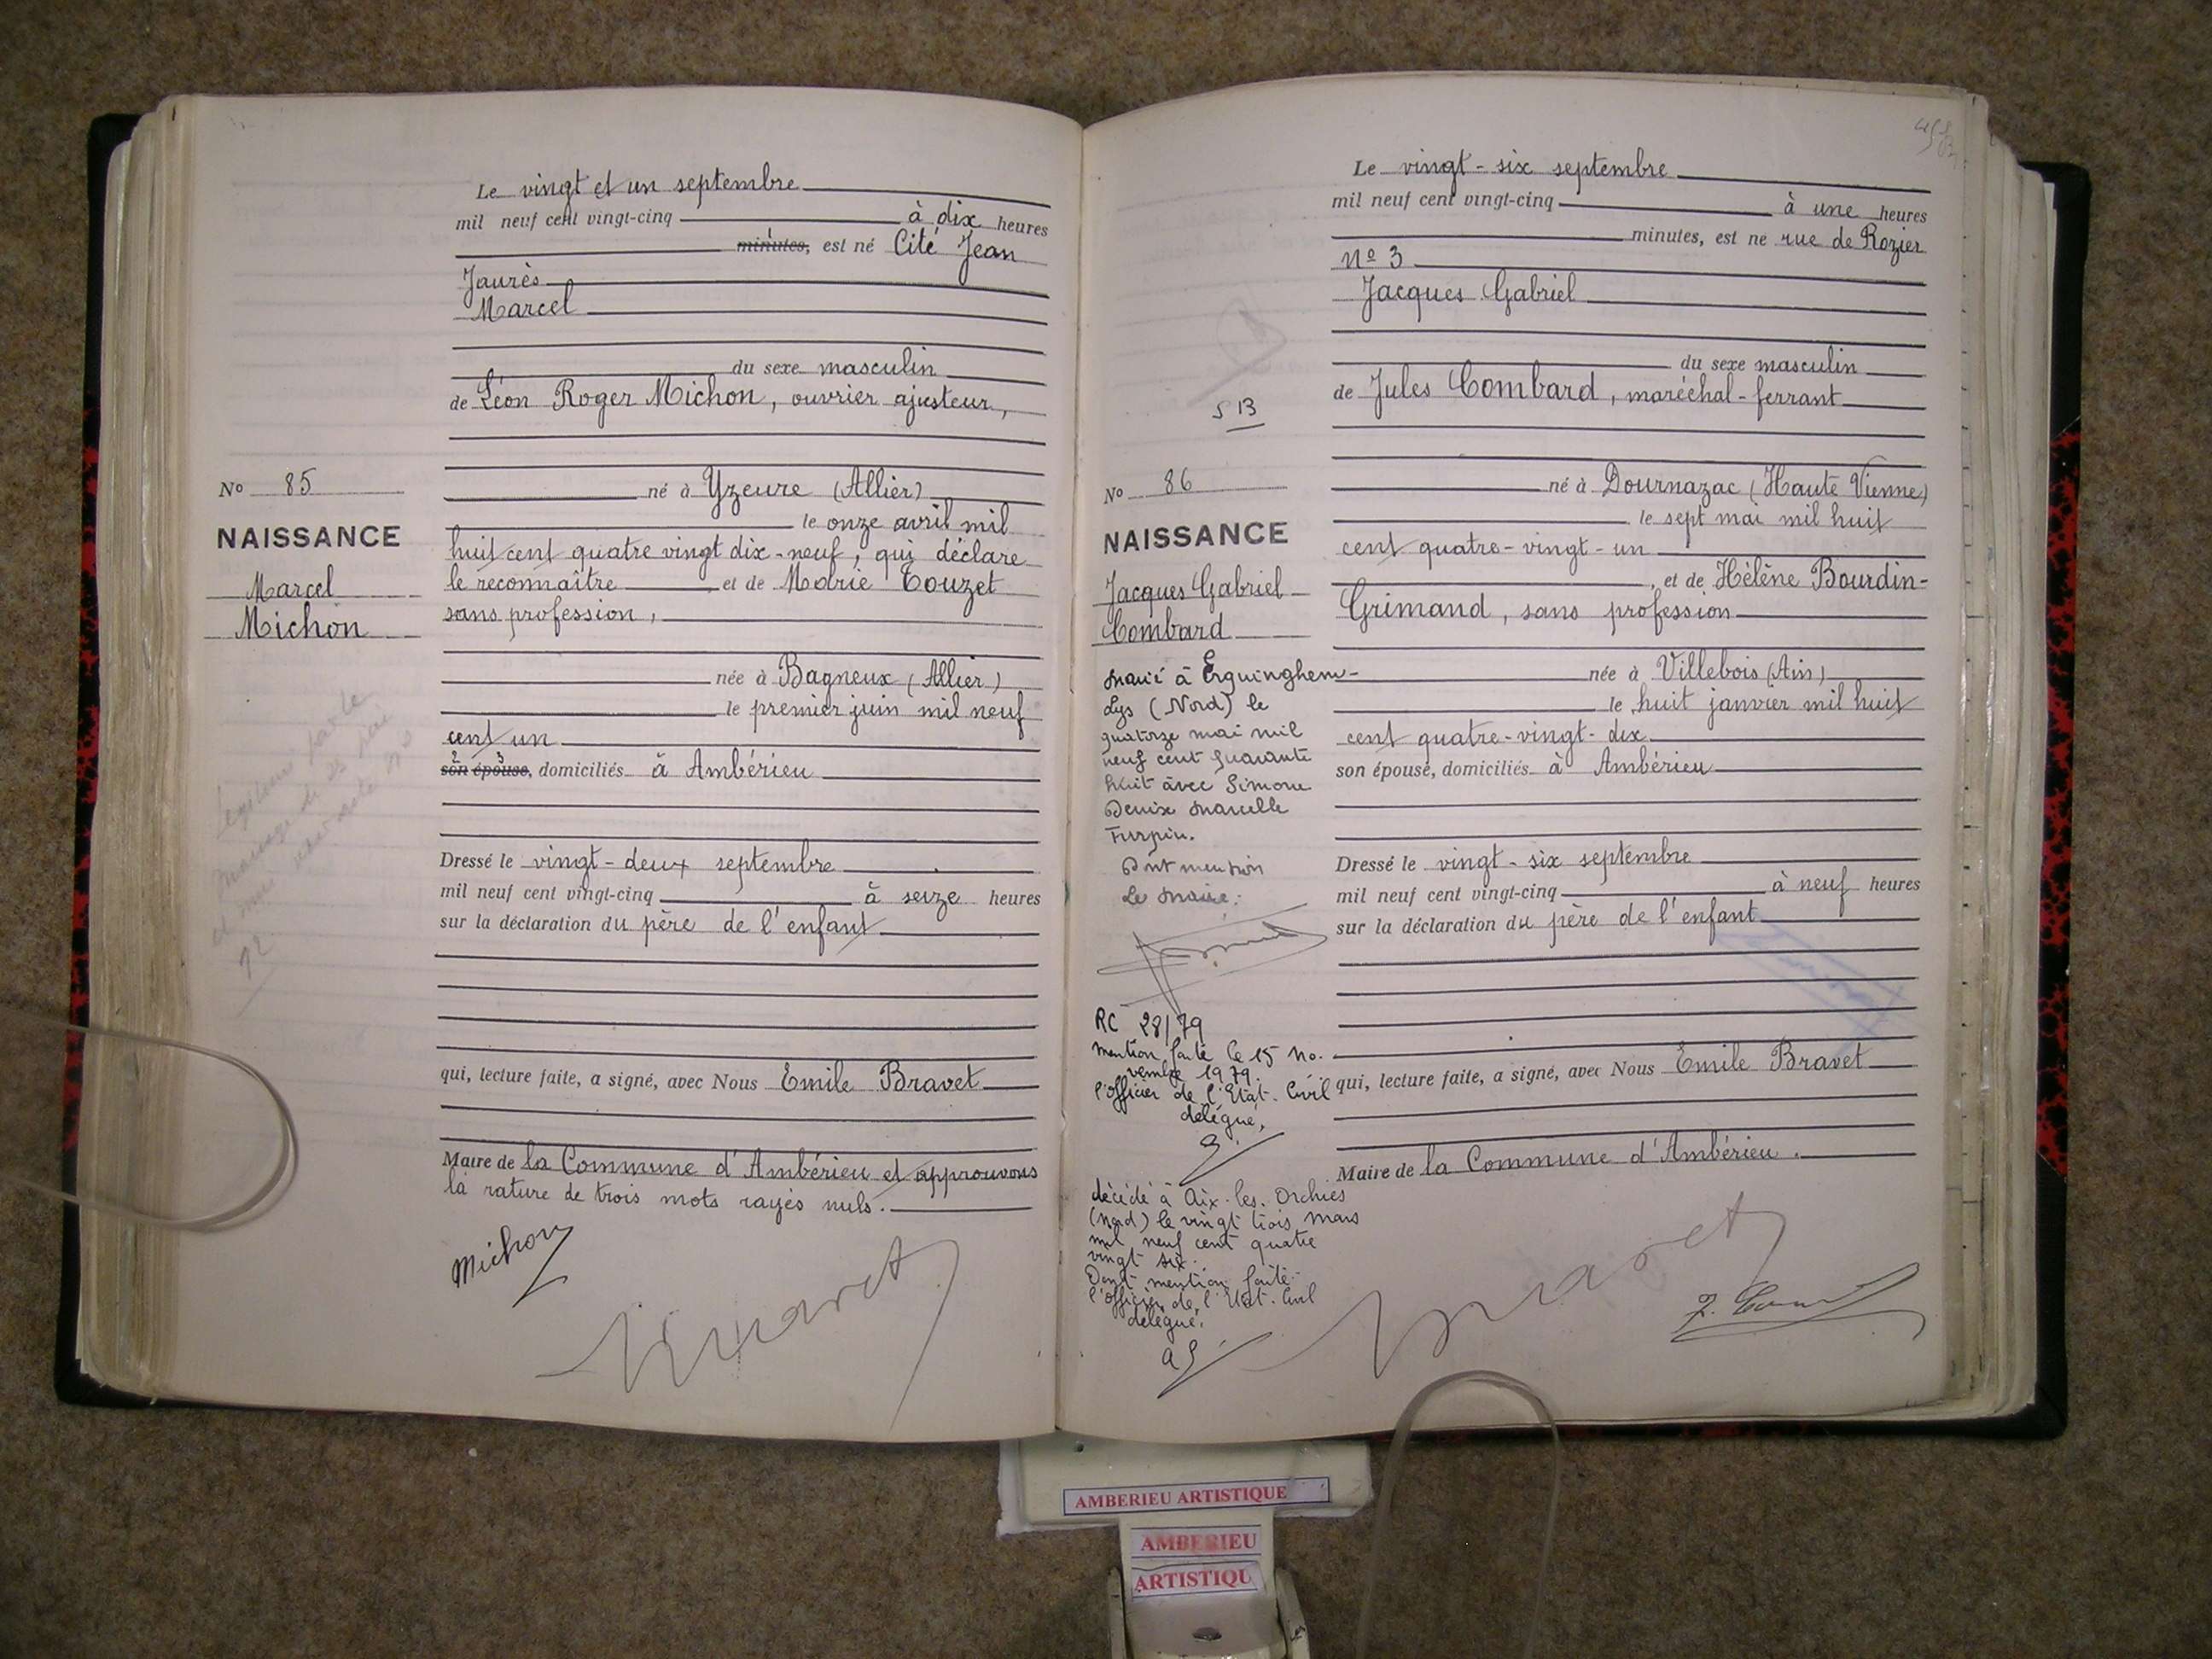 Le vingt et un septembre
mil neuf cent vingt-cinq à dix heures
minutes, est né Cité Jean
Jaurès
Marcel
du sexe masculin
de Léon Roger Michon, ouvrier ajusteur,
né à Yzeure (Allier)
le onze avril mil
huit cent quatre vingt dix-neuf, qui déclare
le reconnaître et de Marie Touzet
sans profession,
née à Bagneux (Allier)
le premier juin mil neuf
cent un
son épouse, domiciliés à Ambérieu
Dressé le vingt-deux septembre
mil neuf cent vingt-cinq à seize heures
sur la déclaration du père de l'enfant
qui, lecture faite, a signé, avec Nous Emile Bravet
Maire de la Commune d'Ambérieu et approuvons
la rature de trois mots rayés nuls.
Michon
No 85
NAISSANCE
Marcel
Michon
Le vingt-six septembre
mil neuf cent vingt-cinq à une heures
minutes, est né rue de Rozier
No 3
Jacques Gabriel
du sexe masculin
de Jules Combard, maréchal-ferrant
né à Dournazac (Haute Vienne)
le sept mai mil huit
cent quatre-vingt-un
, et de Hélène Bourdin-
Grimand, sans profession
née à Villebois (Ain)
le huit janvier mil huit
cent quatre-vingt-dix
son épouse, domiciliés à Ambérieu
Dressé le vingt-six septembre
mil neuf cent vingt-cinq à neuf heures
sur la déclaration du père de l'enfant
qui, lecture faite, a signé, avec Nous Emile Bravet
Maire de la Commune d'Ambérieu.
No 86
NAISSANCE
Jacques Gabriel
Combard
Marié à Erquinghem-
Lys (Nord) le
quatorze mai mil
neuf cent quarante
huit avec Simone
Denise Marcelle
Turpin.
Dont mention
Le Maire:
RC 28/79
mention faite le 15 no-
vembre 1979.
l'officier de l'Etat-Civil
délégué,
décédé à Aix-les-Orchies
(Nord) le vingt trois mars
mil neuf cent quatre
vingt six.
Dont mention faite
l'officier de l'Etat-Civil
délégué.
AMBERIEU ARTISTIQUE
AMBERIEU
ARTISTIQU